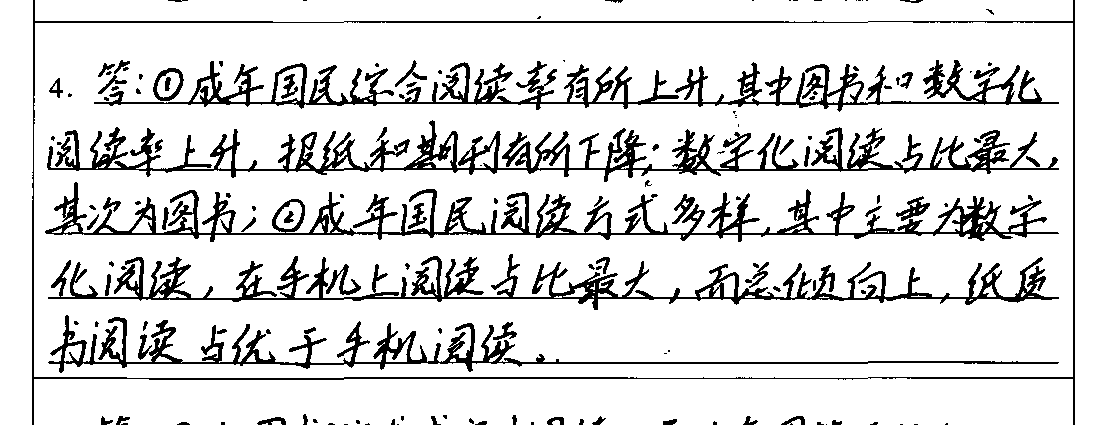 4. 答:①成年国民综合阅读率有所上升,其中图书和数字化
阅读率上升,报纸和期刊有所下降;数字化阅读占比最大,
其次为图书;②成年国民阅读方式多样,其中主要为数字
化阅读,在手机上阅读占比最大,而总倾向上,纸质
书阅读占优于手机阅读。